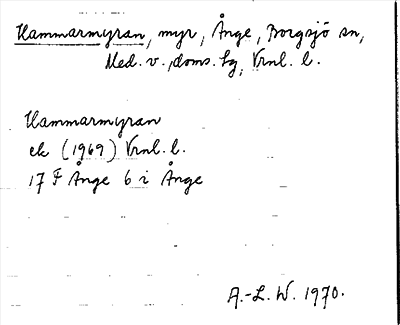 Hammarmyran, myr, Ånge, Borgsjö sn,
Med. v. doms. sg, Vrnl. l.
Hammarmyran
ek (1969) Vrnl. l.
17 F Ånge 6 i Ånge
A.-L. W. 1970.